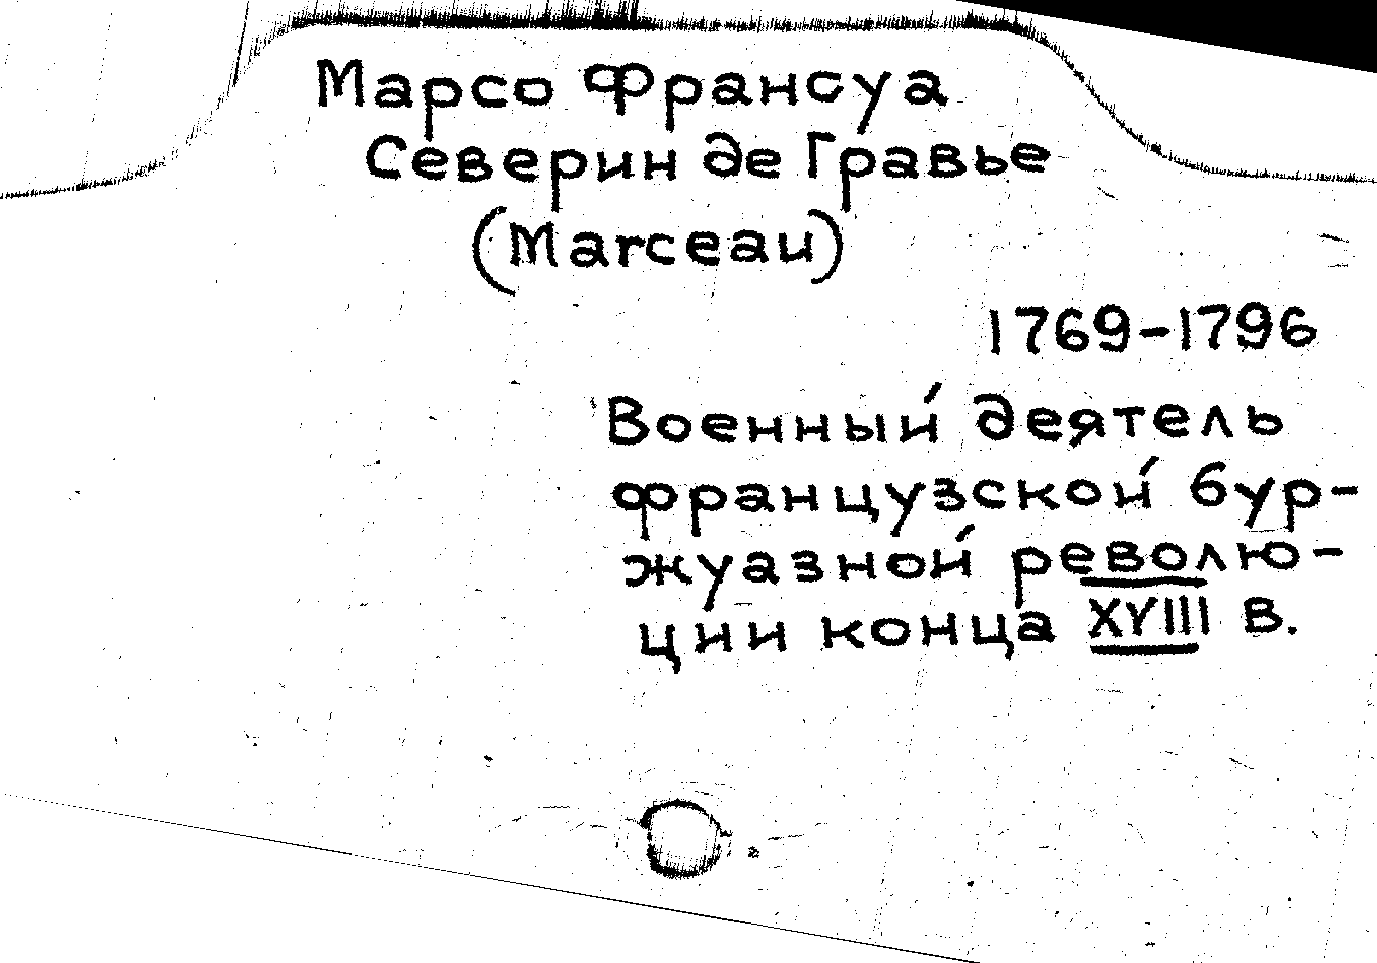 Марсо Франсуа
Северин де Гравье
(Marceau)
1769-1796
Военный деятель
французской бур-
жуазной револю-
ции конца XVIII в.